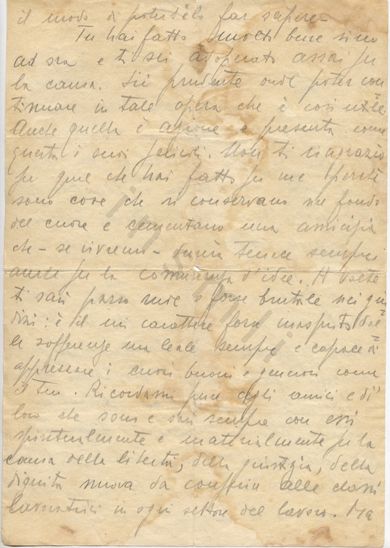 il modo di potertelo far sapere.
Tu hai fatto molto bene sino
ad ora e ti sei adoperato assai per
la causa. Sii prudente onde poter con
tinuare in tale opera che è così utile.
Anche quella è azione e presenta come
questa i suoi pericoli. Non ti ringrazio
per quel che hai fatto per me perchè
sono cose che si conservano nel fondo
del cuore e cementano una amicizia
che - se vivremo - durerà tenace sempre
anche per la comunanza d'idee. A volte
ti sarò parso rude e forse brutale nei giu
dizi: è il mio carattere forse inasprito dal
le sofferenze ma leale sempre e capace di
apprezzare i cuori buoni e generosi come
il tuo. Ricordami pure agli amici e di'
loro che sono e sarò sempre con essi
spiritualmente e materialmente per la
causa della libertà, della giustizia, della
dignità nuova da conferire alle classi
lavoratrici in ogni settore del lavoro. Ma